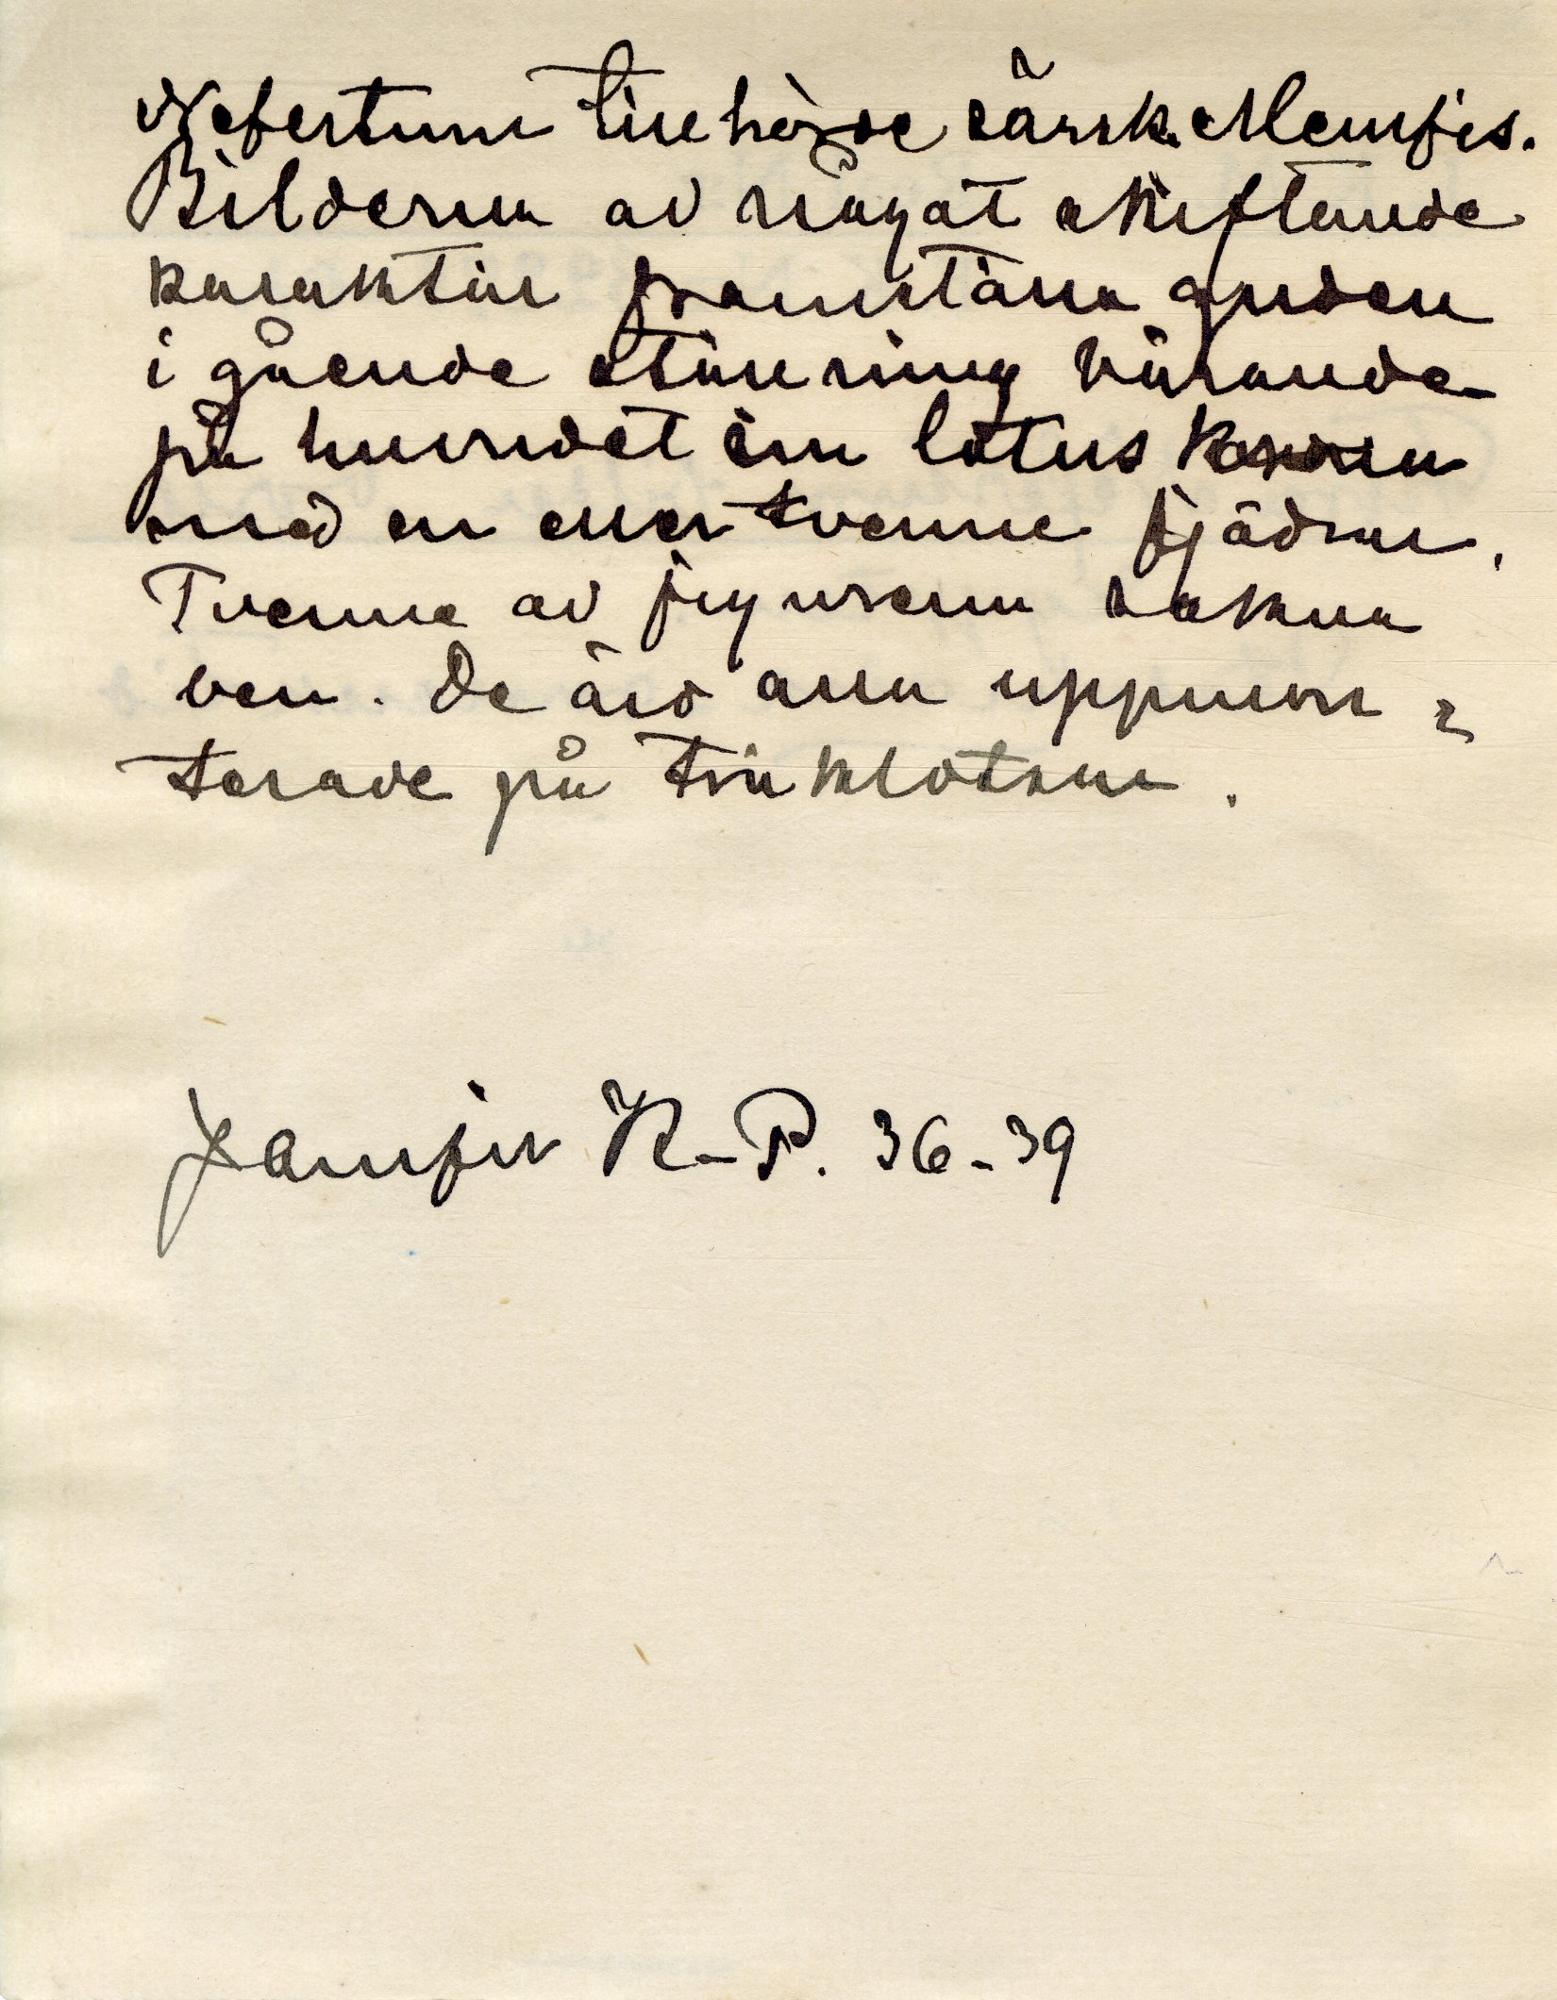 Nefertum tillhörde särsk. Memfis.
Bilderna av något skiftande
karaktär framställa guden
i gående ställning bärande
på huvudet en lotus krona
med en eller tvenne fjädrar.
Tvenne av figurerna sakna
ben. De äro alla uppmon=
terade på träklotsar.
Jämför R-P. 36-39